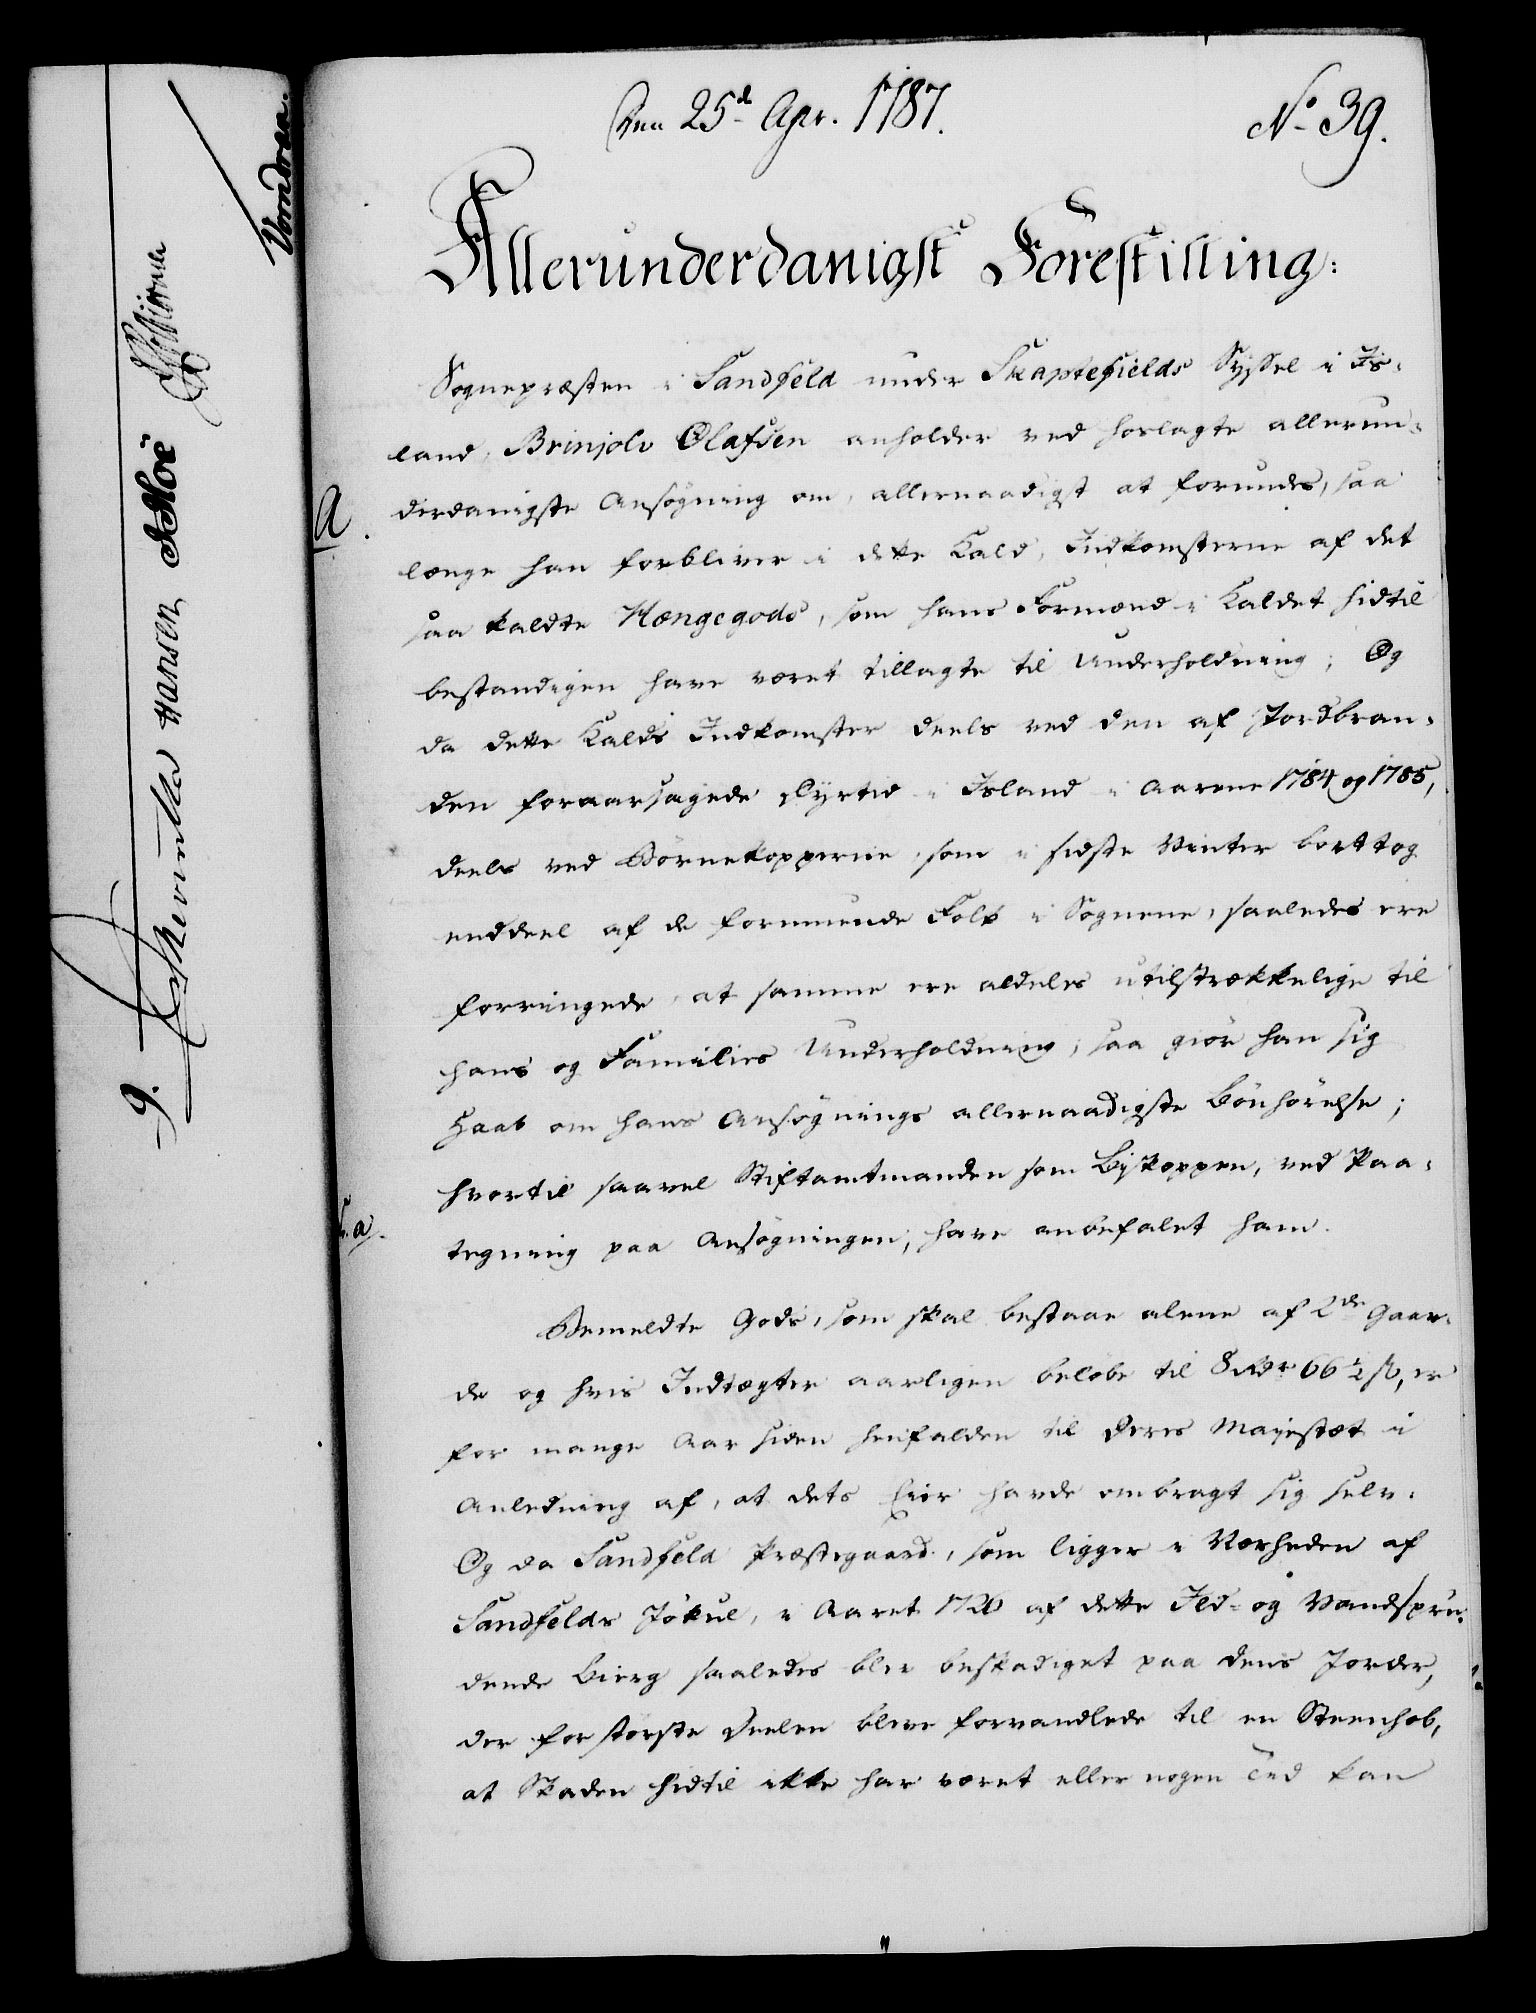 Den 25d Apr. 1787.
No 39.
Allerunderdanigst Forestilling:
Sognepræsten i Sandfeld under Skaptefields Syssel i Is-
land, Brinjolv Olafsen anholder ved hoslagte allerun-
derdanigste Ansøgning om, allernaadigst at forundes, saa
A.
længe han forbliver i dette Kald, Indkomsterne af det
saa kaldte Hængegods, som hans Formænd i Kaldet hidtil
bestandigen have været tillagte til Underholdning; Og
da dette Kalds Indkomster deels ved den af Jordbran-
den foraarsagede Dyrtid i Island i Aarene 1784 og 1785,
deels ved Børnekopperne, som i sidste Vinter borttog
enddeel af de formuende Folk i Sognene, saaledes ere
forringede, at samme ere aldeles utilstrækkelige til
hans og Families Underholdning; saa giør han sig
Haab om hans Ansøgnings allernaadigste Bønhørelse;
hvortil saavel Stiftamtmanden som Biskoppen, ved Paa-
L. a.
tegning paa Ansøgningen, have anbefalet ham.
Bemeldte Gods, som skal bestaae alene af 2de Gaar-
de og hvis Indtægter aarligen beløbe til 8 Rdr 66 1/2 ß, er
for mange Aar siden henfalden til Deres Majestæt i
Anledning af, at dets Eier havde ombragt sig selv.
Og da Sandfeld Præstegaard, som ligger i Nærheden af
Sandfelds Jøkul, i Aaret 1726 af dette Ild- og Vandspru-
dende Bierg saaledes blev beskadiget paa dens Jorder,
der for største Deelen bleve forvandlede til en Steenhob,
at Skaden hidtil ikke har været eller nogen Tid kan
9.
Hansen Hoë
Vondraa.